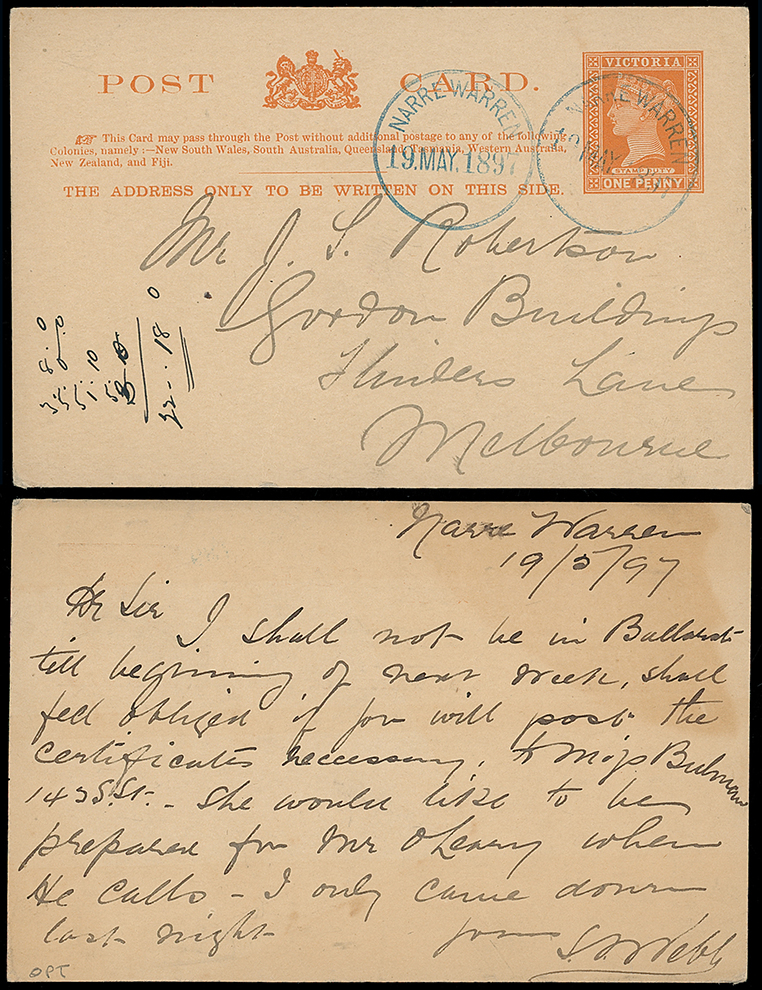 POST CARD.
VICTORIA
STAMP DUTY
ONE PENNY
This Card may pass through the Post without additional postage to any of the following
Colonies, namely :—New South Wales, South Australia, Queensland, Tasmania, Western Australia,
New Zealand, and Fiji.
THE ADDRESS ONLY TO BE WRITTEN ON THIS SIDE.
NARRE WARREN
19.MAY.1897
NARRE WARREN
Mr J. S. Robertson
Gordon Buildings
Flinders Lane
Melbourne
22..18 0
Narre Warren
19/5/97
Dr Sir I shall not be in Ballarat
till beginning of next week, shall
feel obliged if you will post the
certificates necessary, to Miss Bulman
143 S. St. - She would like to be
prepared for Mr O'Leary when
He calls - I only came down
last night
yours
Webb
OPT